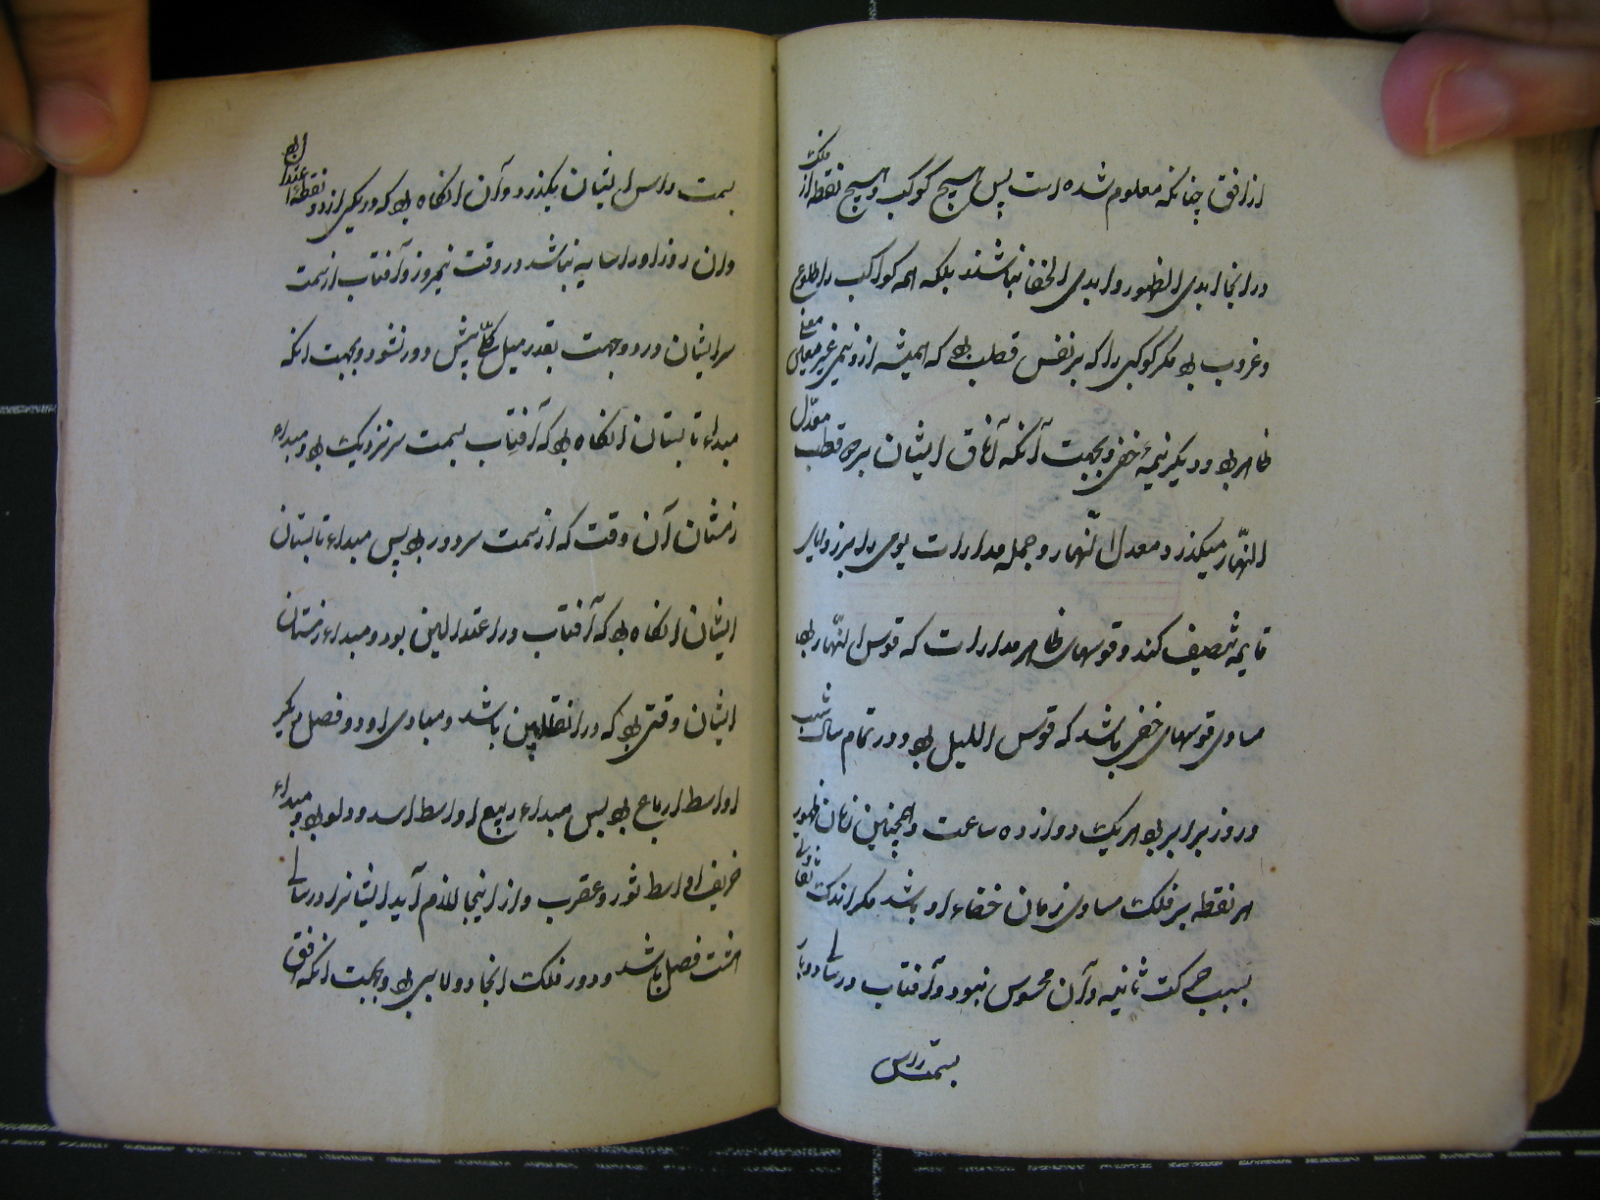 از افق چنانکه معلوم شده است پس هیچ کوکب و هیچ نقطه از فلک
در انجا ابدی الظهور و ابدی الخفا نباشند بلکه همه کواکب را طلوع
و غروب بود مکر کوکبی را که بر نفس قطب بود که همیشه ازو نیمی غیر معین
ظاهر بود و دیکر نیمهٔ خفی و بجهت آنکه آفاق ایشان بر دو قطب معدّل
النّهار میکذرد و معدل النّهار و جمله مدارات یومی را بر زوایای
قایمه تنصیف کند و قوسهای ظاهر مدارات که قوس النّهار بود
مساوی قوسهای خفی باشد که قوس اللیل بود و در تمام سال شب
و روز برابر بود هریک دوازده ساعت و همچنین زمان ظهور
هر نقطه بر فلک مساوی زمان خفاء او باشد مکر اندک تفاوتی
بسبب حرکت ثانیه و آن محسوس نبود و آفتاب در سالی دو بار
بسمت راس
بسمت راس ایشان بکذرد و آن انکاه بود که در یکی از دو نقطهٔ اعتدال بود
و ان روز او را سایه نباشد در وقت نیمروز و آفتاب از سمت
سر ایشان در دو جهت بقدر میل کلّی بیش دور نشود و بجهت انکه
مبداء تابستان انکاه بود که آفتاب بسمت سر نزدیک بود و مبداء
زمستان آن وقت که از سمت سر دور بود پس مبداء تابستان
ایشان انکاه بود که آفتاب در اعتدالین بود و مبداء زمستان
ایشان وقتی بود که در انقلابین باشد و مبادی او دو فصل دیکر
اواسط ارباع بود پس مبداء ربیع اواسط اسد و دلو بود و مبداء
خریف اواسط ثور و عقرب و از اینجا لازم آید ایشانرا در سالی
هشت فصل باشد و دور فلک انجا دولابی بود و بجهت انکه افق